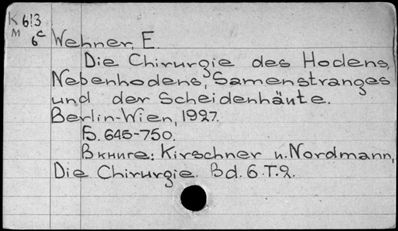 K 613
M 6c
Wehner, E.
Die Chirurgie des Hodens,
Nebenhodens, Samenstranges
und der Scheidenhäute.
Berlin-Wien, 1927.
S. 645-750.
В книге: Kirschner u. Nordmann,
Die Chirurgie. Bd. 6. T. 2.